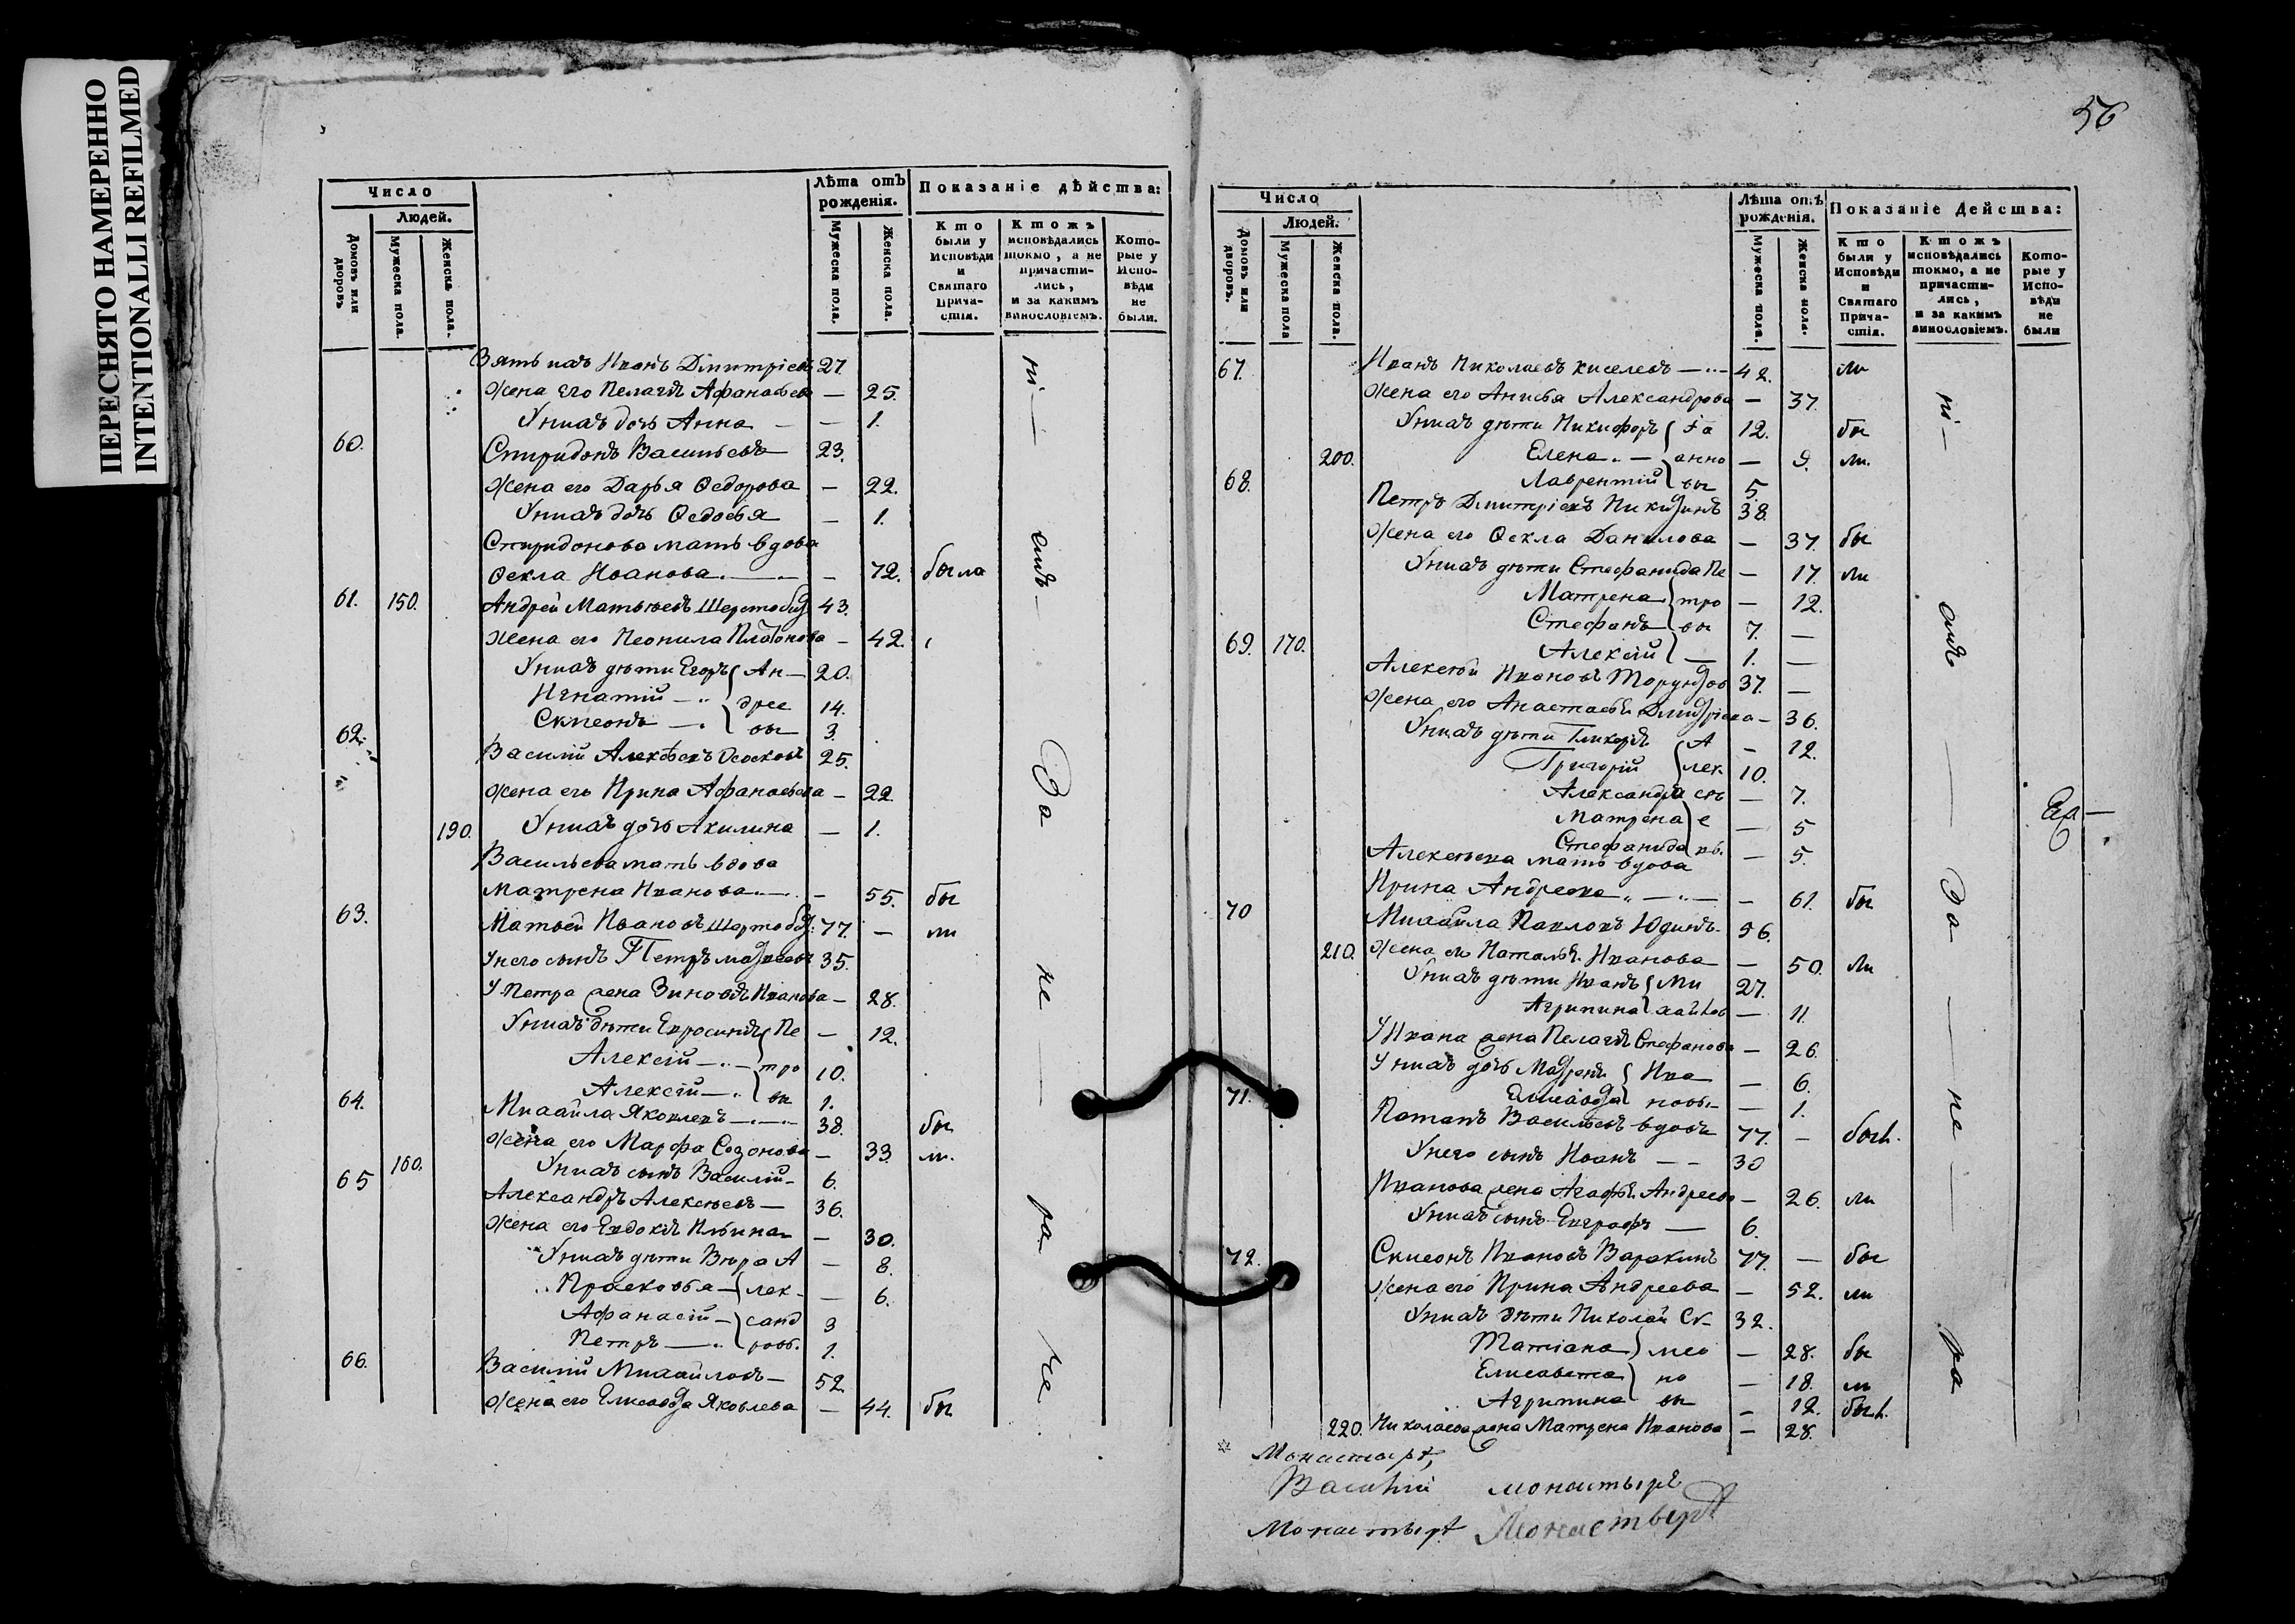 ПЕРЕСНЯТО НАМЕРЕННО
INTENTIONALLI REFILMED
Число
Людей.
Домовъ или дворовъ
Мужеска пола.
Женска пола.
Лѣта отъ рожденія.
Мужеска пола.
Женска пола.
Показаніе дѣйства:
Кто были у Исповѣди и Святаго Прича-стія.
Ктожъ исповѣдались токмо, а не причасти-лись, и за какимъ винословіемъ.
Кото-рые у Испо-вѣди не были.
Зять ихъ Иванъ Димитріевъ 27
Жена его Пелагія Афанасьева — 25.
У нихъ дочь Анна — — 1.
60. Спиридонъ Васильевъ 23.
Жена его Дарья Ѳедорова — 22.
У нихъ дочь Ѳедосья — 1.
Спиридонова мать вдова
Ѳекла Иванова — 72. была
61. 150. Андрей Матвѣевъ 43.
Жена его Неонила Платонова — 42.
У нихъ дѣти Егоръ Ан— 20.
Игнатій — дрее 14.
Симеонъ — вы 3.
62. Василій Алексѣевъ 25.
Жена его Ирина Афанасьева — 22.
190. У нихъ дочь Акилина — 1.
Васильева мать вдова
Матрена Иванова — 55. бы
63. Матвей Ивановъ 77. — ли
У него сынъ Петръ Матвеевъ 35.
У Петра жена Зиновія Иванова — 28.
У нихъ дѣти Евросинія Пе — 12.
Алексій — тро 10.
Алексій — вы 1.
64. Михайла Яковлевъ 38. бы
Жена его Марфа Созонова — 33. ли.
160. У нихъ сынъ Василій 6.
65 Александръ Алексѣевъ — 36.
Жена его Евдокія Ильина — 30.
У нихъ дѣти Вѣра А — 8.
Прасковья — лек — 6.
Афанасій — санд 3
Петръ — ровы. 1.
66. Василій Михайловъ — 52.
Жена его Елисавета Яковлева — 44. бы
за не ра че
56
Число
Людей.
Домовъ или дворовъ.
Мужеска пола
Женска пола.
Лѣта отъ рожденія.
Мужеска пола.
Женска пола.
Показаніе Действа:
Кто были у Исповѣди и Святаго Прича-стія.
Ктожъ исповѣдались токмо, а не причасти-лись, и за какимъ винословіемъ.
Кото-рые у Испо-вѣди не были
67. Иванъ Николаевъ Киселевъ — 42. ли
Жена его Анисья Александрова — 37.
У нихъ дѣти Никифоръ 12. бы
200. Елена — анно — 9. ли.
68. Лаврентій вы 5.
Петръ Димитріевъ Никитинъ 38.
Жена его Ѳекла Данилова — 37. бы
У нихъ дѣти Стефанида Пе — 17. ли
Матрена тро — 12.
Стефанъ вы 7. —
69. 170. Алексій — 1. —
Алексѣй Ивановъ 37. —
Жена его Анастасья Димитріева — 36.
У нихъ дѣти Гликерія А — 12.
Григорій лек 10.
Александра сѣ — 7.
Матрена е — 5
Стефанида вы. — 5.
Алексѣева мать вдова
Ирина Андреева — 61. бы
70 Михайла Павловъ Юдинъ 56.
210. Жена его Наталья Иванова — 50. ли
У нихъ дѣти Иванъ Ми 27.
Агрипина хайлов — 11.
У Ивана жена Пелагія Стефанова — 26.
У нихъ дочь Матрена Ива — 6.
71. Елисавета новы — 1.
Потапъ Васильевъ вдовъ 77. — былъ.
У него сынъ Иванъ — — 30
Иванова жена Агафья Андреева — 26. ли
У нихъ сынъ Евграфъ — 6.
72. Симеонъ Ивановъ 77. — бы
Жена его Ирина Андреева — 52. ли
У нихъ дѣти Николай Си 32.
Татіана мео — 28. бы
Елисавета но — 18. ли
Агрипина вы — 12. был.
220. Николаева жена Матрена Иванова — 28.
за не ра
Монастырь,
Василій монастырь
Монастырь Монастырь